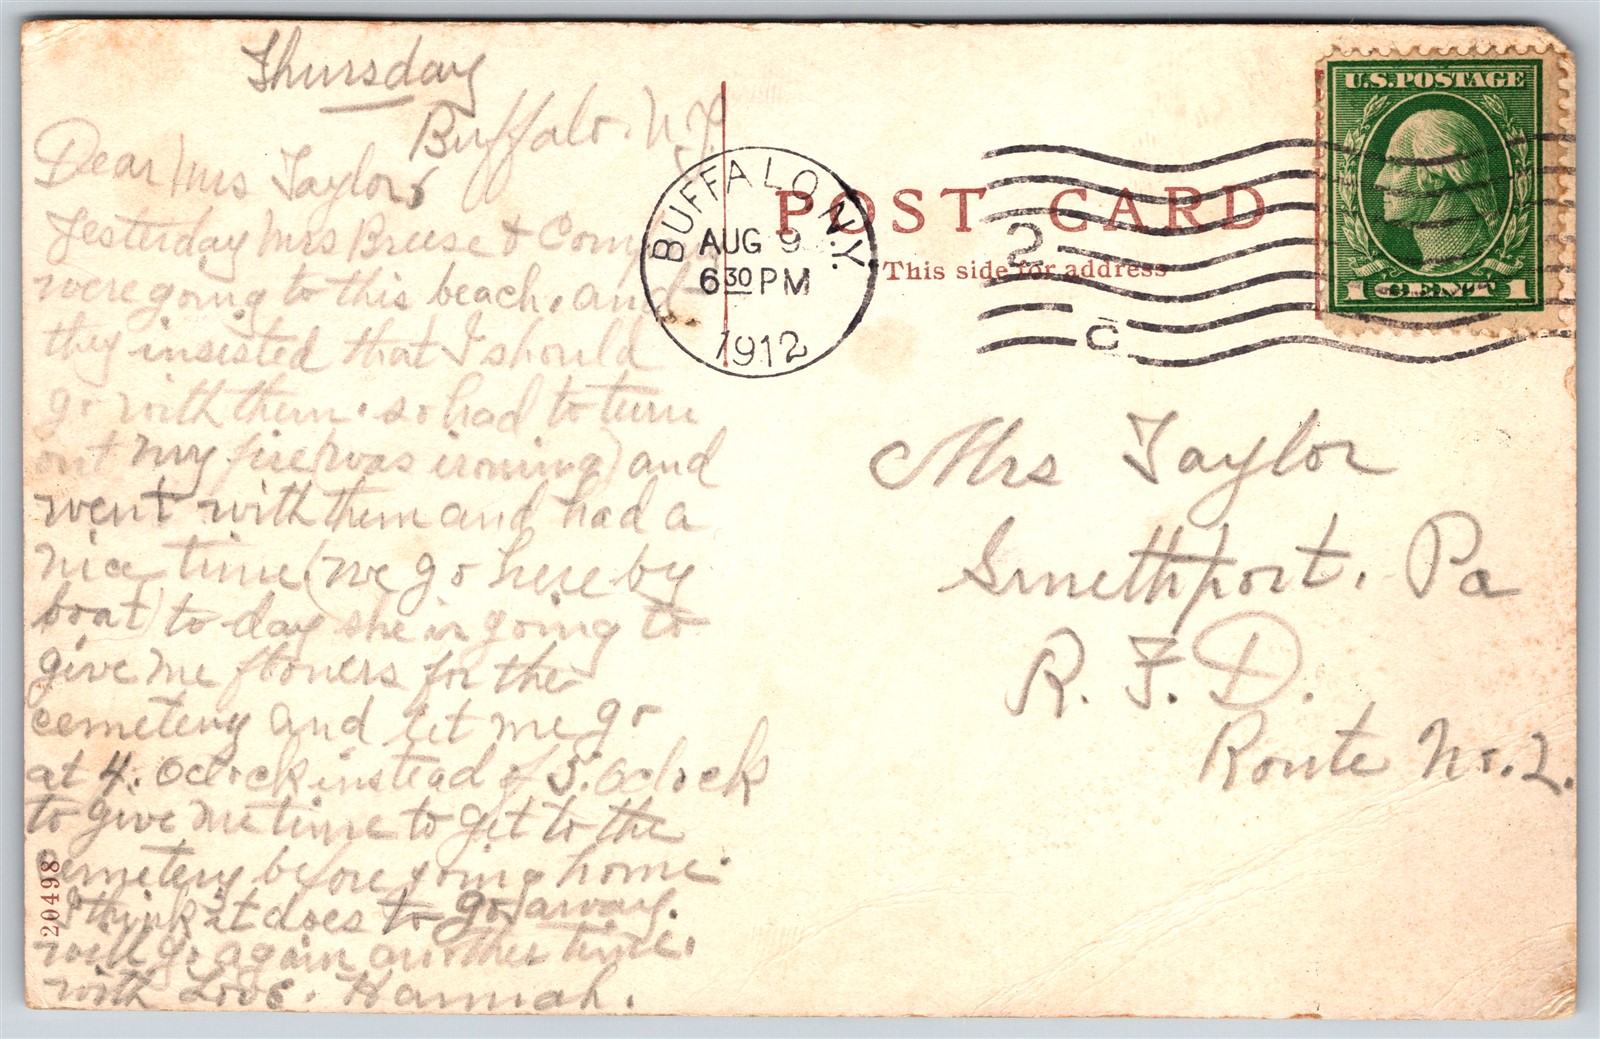 Thursday
Buffalo. N.Y.
Dear Mrs Taylor,
Yesterday Mrs Breese & Comp
were going to this beach, and
they insisted that I should
go with them. so had to turn
out my fire (was ironing) and
went with them and had a
nice time (we go here by
boat) to day she is going to
give me flowers for the
cemetery and let me go
at 4. Oclock instead of 5. Oclock
to give me time to get to the
cemetery before going home.
I think it does to go away.
will go again another time.
with Love. Hannah.
20498
BUFFALO N.Y.
AUG 9
6 30 PM
1912
POST CARD
This side for address
2
C
U.S. POSTAGE
1 CENT 1
Mrs Taylor
Smethport. Pa
R. F. D.
Route No. 2.